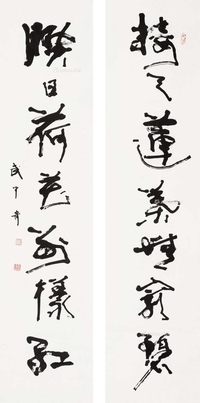 接天蓮葉無窮碧
映日荷花別樣紅
武中奇